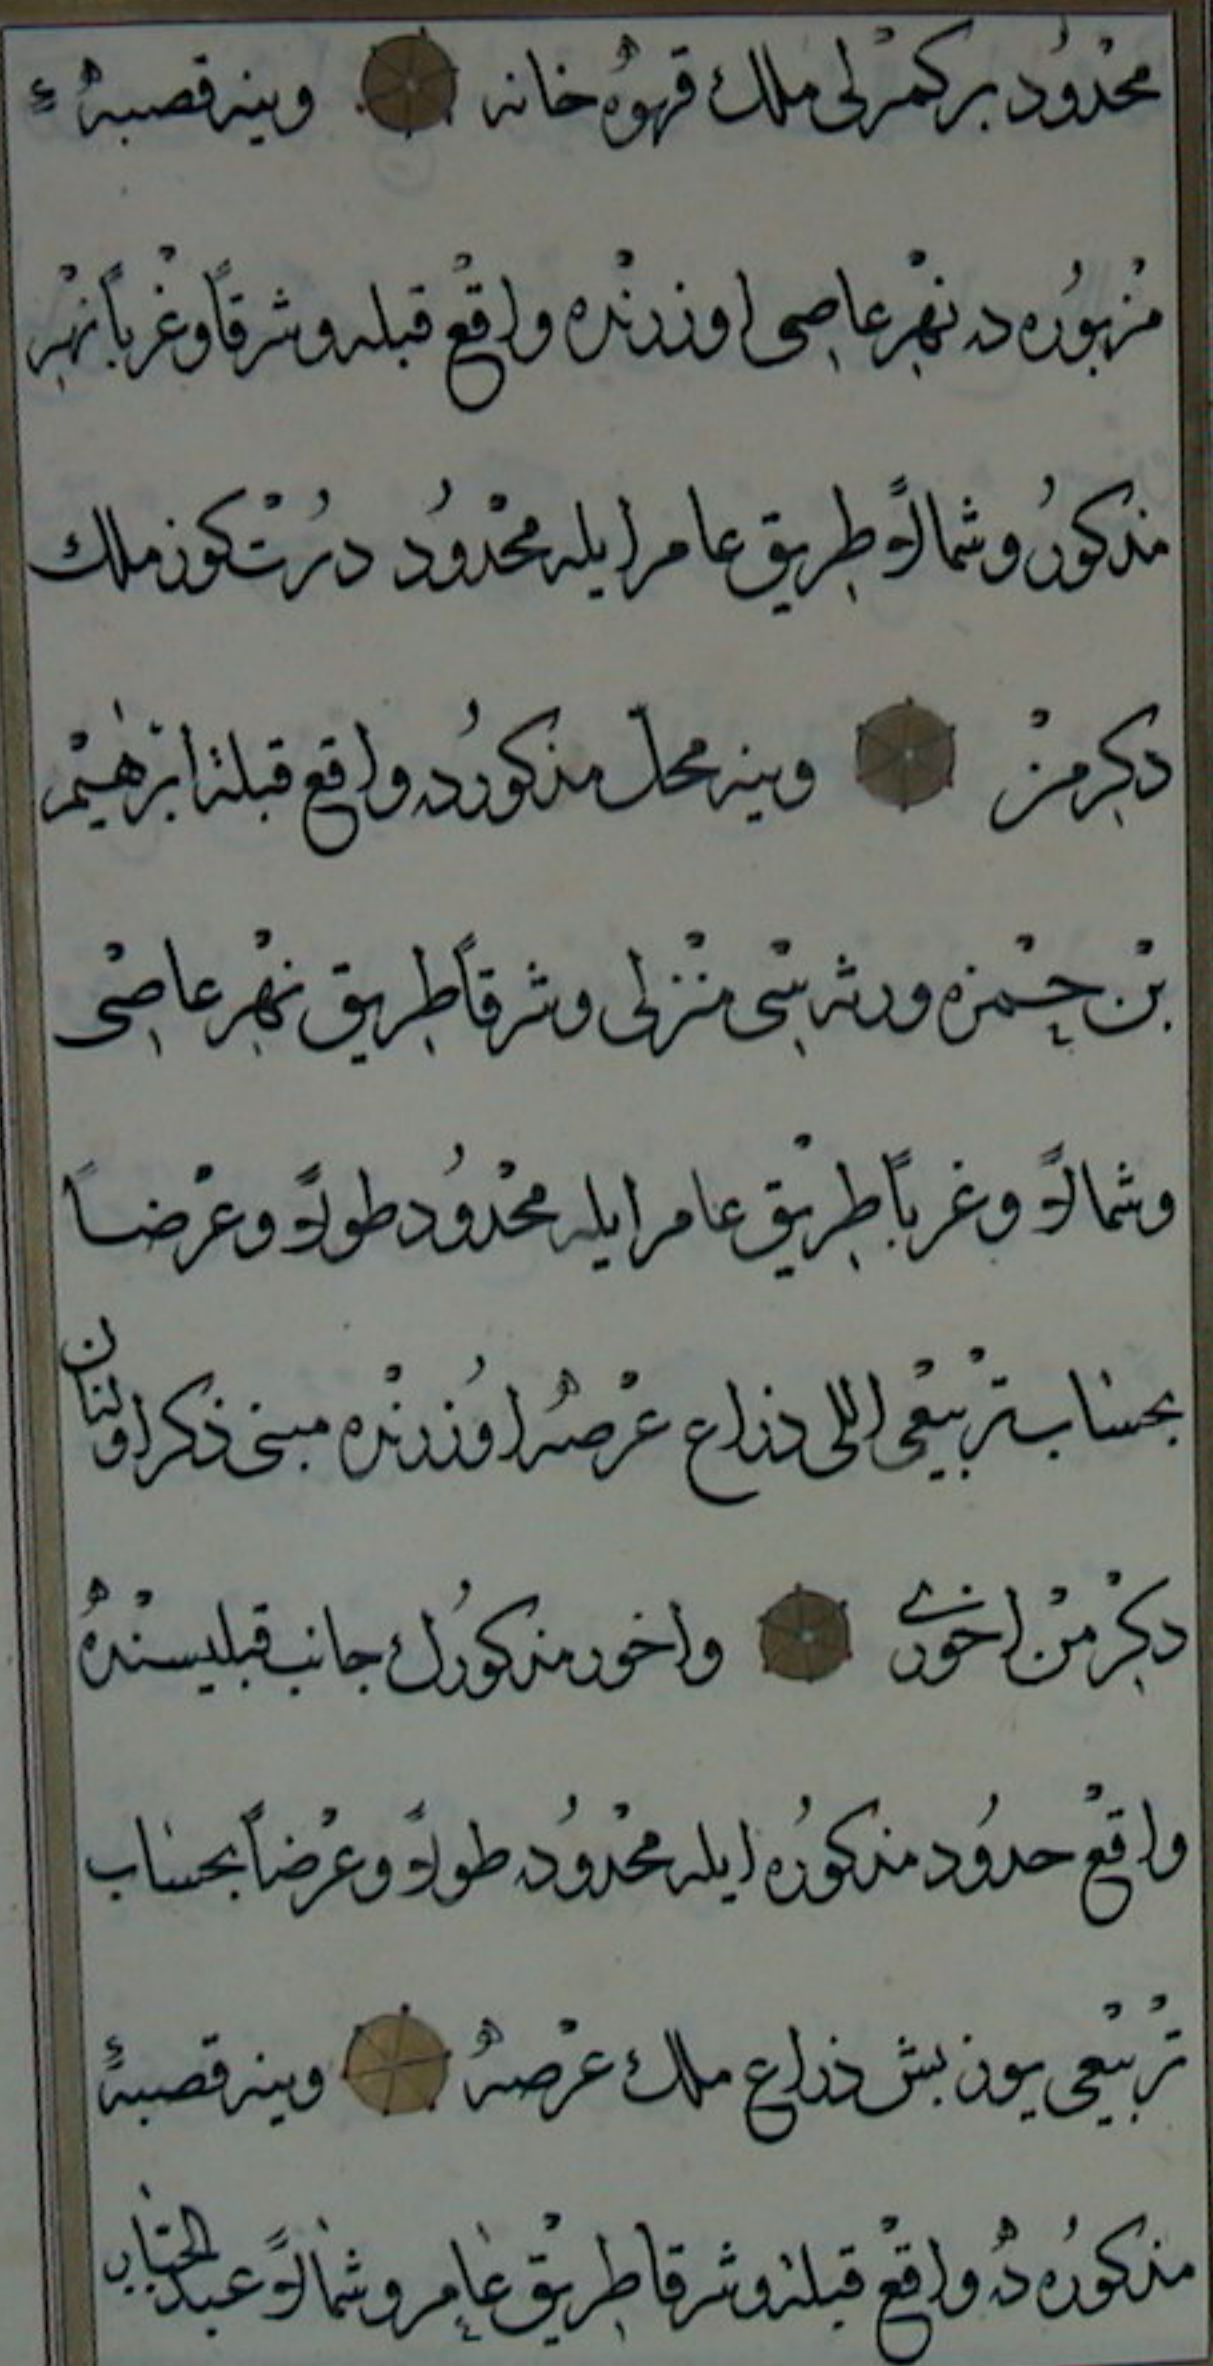 محدود بر كمرلی ملك قهوه خانه وینه قصبهٔ
مزبوره ده نهر عاصی اوزرنده واقع قبلة وشرقاً وغرباً نهر
مذكور وشمالاً طریق عام ایله محدود درت كوز ملك
دكرمن وینه محل مذكورده واقع قبلة ابرهیم
بن حمزه ورثه سی منزلی وشرقاً طریق نهر عاصی
وشمالاً وغرباً طریق عام ایله محدود طولاً وعرضاً
بحساب تربیعی اللی ذراع عرصه اوزرنده مبنی ذكر اولنان
دكرمن اخوری واخور مذكورك جانب قبلیسنده
واقع حدود مذكوره ایله محدود طولاً وعرضاً بحساب
تربیعی یوز بش ذراع ملك عرصه وینه قصبهٔ
مذكوره ده واقع قبلة وشرقا طریق عام وشمالاً عبد